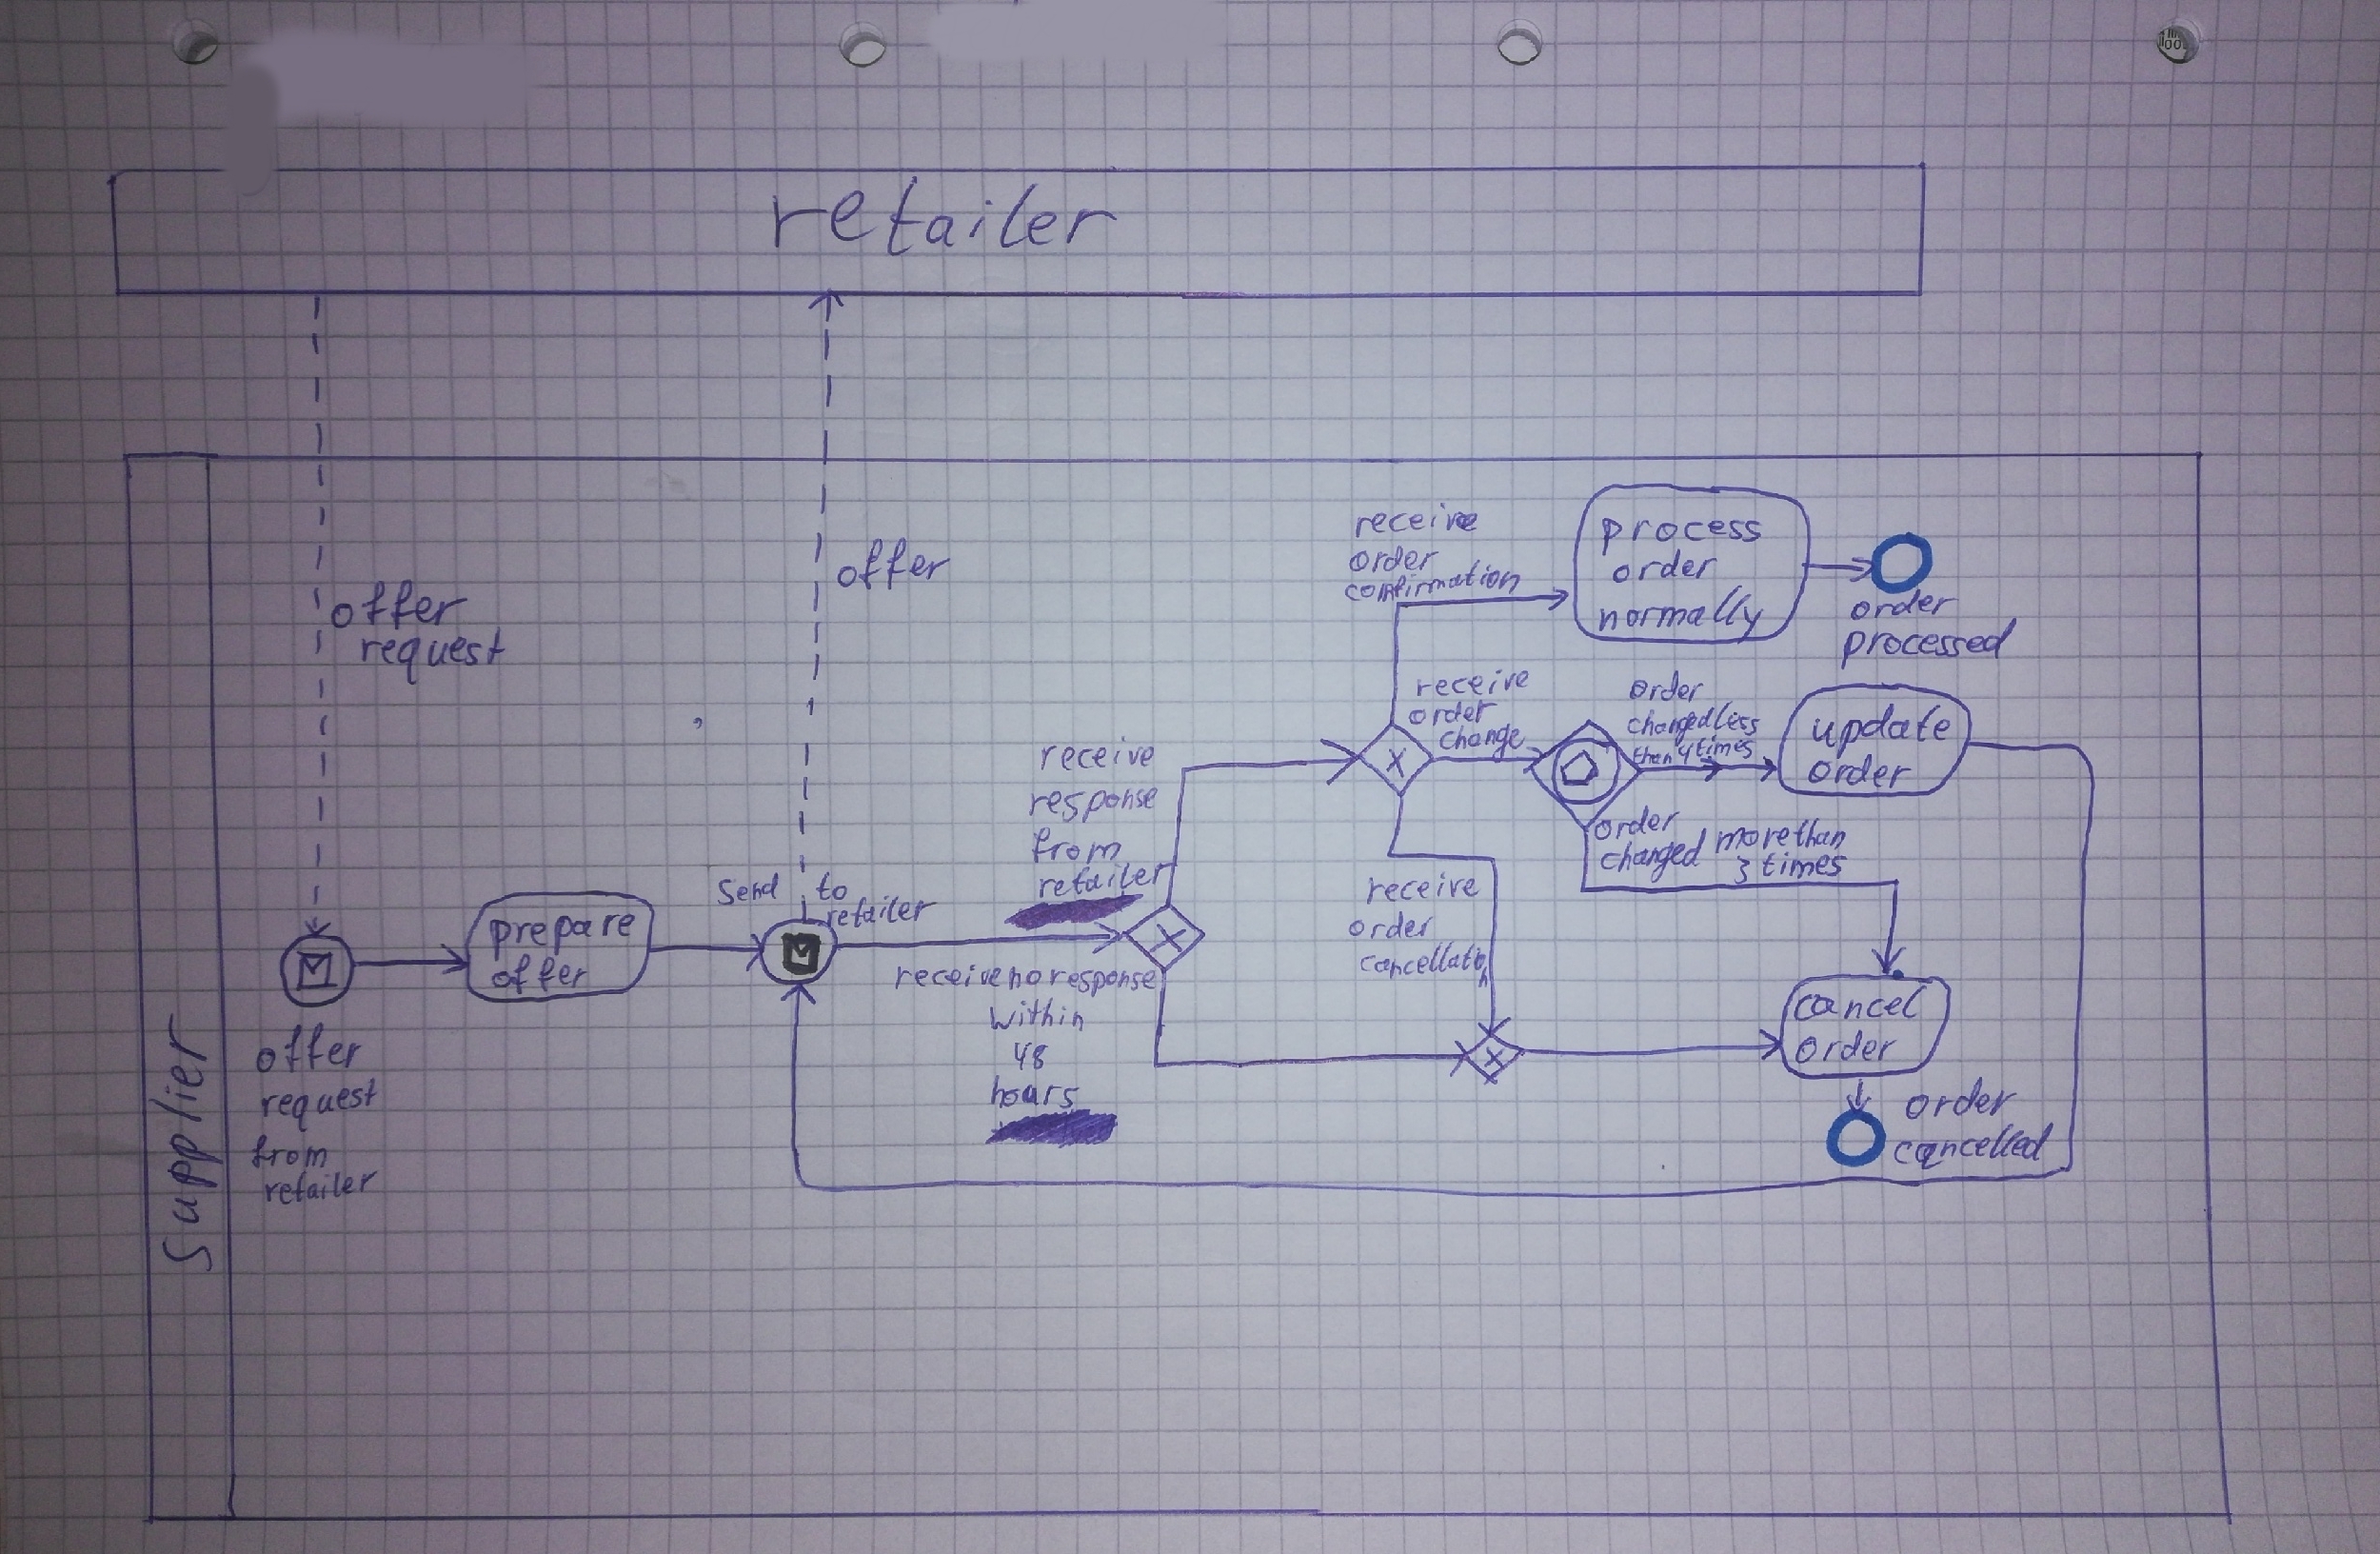 retailer
offer
request
offer
Supplier
offer
request
from
retailer
prepare
offer
Send to
retailer
receive
response
from
retailer
receive no response
within
48
hours
receive
order
confirmation
process
order
normally
order
processed
receive
order
change
order
changed less
than 4 times
update
order
order
changed more than
3 times
receive
order
cancellation
cancel
order
order
cancelled